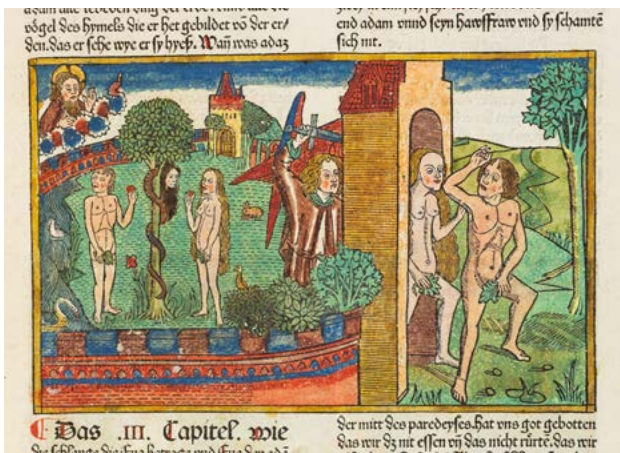 vögel des hymels die er het gebildet võ der er/
den.das er sehe wye er sy hyeß. Wañ was adaz
end adam vnnd seyn hawssfraw vnd sy schamtẽ
sich nit.
Das .III. Capitel. wie
der mitt des paredeyses.hat vns got gebotten
das wir dz nit essen vñ das nicht rürtẽ.das wir